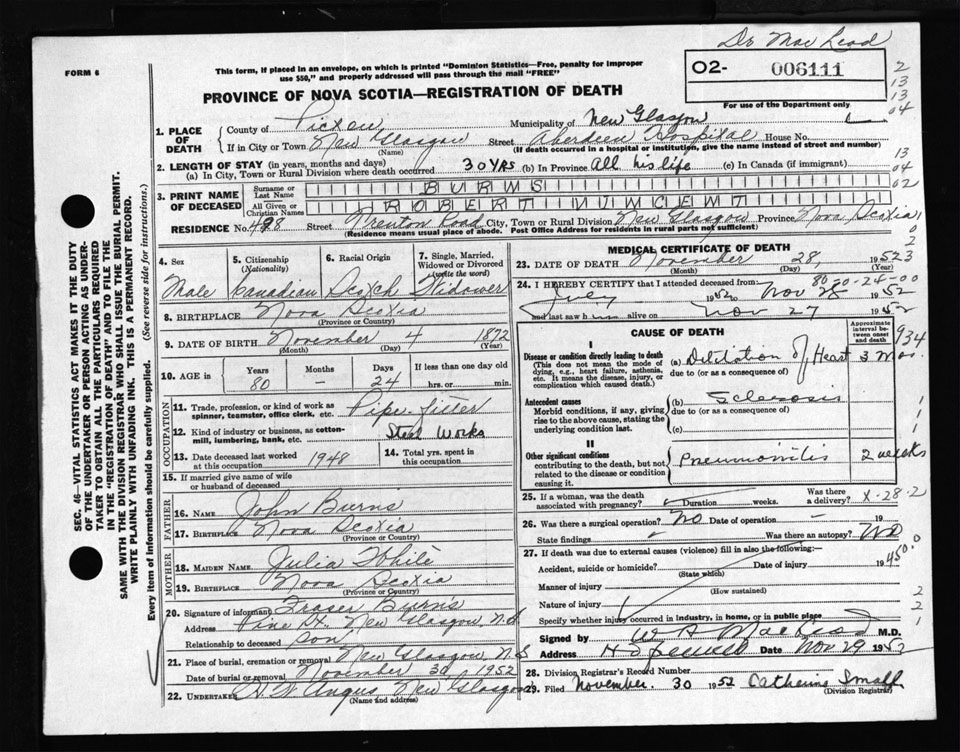 Dr MacLeod
FORM 6
This form, if placed in an envelope, on which is printed "Dominion Statistics—Free, penalty for improper
use $50," and properly addressed will pass through the mail "FREE"
O2- 006111
PROVINCE OF NOVA SCOTIA—REGISTRATION OF DEATH
For use of the Department only
2
13
13
04
1. PLACE OF DEATH
County of Pictou Municipality of New Glasgow
If in City or Town New Glasgow Street Aberdeen Hospital House No.
(Name) (If death occurred in a hospital or institution, give the name instead of street and number)
2. LENGTH OF STAY (in years, months and days)
(a) In City, Town or Rural Division where death occurred 30 YRS (b) In Province All his life (c) In Canada (if immigrant)
13
04
02
3. PRINT NAME OF DECEASED
Surname or Last Name BURNS
All Given or Christian Names ROBERT VINCENT
RESIDENCE No. 498 Street Trenton Road City, Town or Rural Division New Glasgow Province Nova Scotia
(Residence means usual place of abode. Post Office Address for residents in rural parts not sufficient)
4. Sex Male
5. Citizenship (Nationality) Canadian
6. Racial Origin Scotch
7. Single, Married, Widowed or Divorced (write the word) Widower
8. BIRTHPLACE Nova Scotia
(Province or Country)
9. DATE OF BIRTH November 4 1872
(Month) (Day) (Year)
10. AGE in Years 80 Months – Days 24 If less than one day hrs. or min.
OCCUPATION
11. Trade, profession, or kind of work as spinner, teamster, office clerk, etc. Pipe-fitter
12. Kind of industry or business, as cotton-mill, lumbering, bank, etc. Steel Works
13. Date deceased last worked at this occupation 1948
14. Total yrs. spent in this occupation
15. If married give name of wife or husband of deceased
FATHER
16. NAME John Burns
17. BIRTHPLACE Nova Scotia
(Province or Country)
MOTHER
18. MAIDEN NAME Julia White
19. BIRTHPLACE Nova Scotia
(Province or Country)
20. Signature of informant Fraser Burns
Address Pine St. New Glasgow, N.S
Relationship to deceased son
21. Place of burial, cremation or removal New Glasgow, N.S
Date of burial or removal November 30 1952
22. UNDERTAKER Angus, New Glasgow
(Name and address)
MEDICAL CERTIFICATE OF DEATH
23. DATE OF DEATH November 28 1952
(Month) (Day) (Year)
24. I HEREBY CERTIFY that I attended deceased from
80 0-24-00
1952 to Nov 28 1952
and last saw him alive on Nov 27 1952
CAUSE OF DEATH
Approximate interval between onset and death
934
I
Disease or condition directly leading to death
(This does not mean the mode of dying, e.g., heart failure, asthenia, etc. It means the disease, injury, or complication which caused death.)
(a) Delitation of Heart 3 Mos.
due to (or as a consequence of)
Antecedent causes
Morbid conditions, if any, giving rise to the above cause, stating the underlying condition last.
(b) Sclerosis
due to (or as a consequence of)
(c)
II
Other significant conditions
contributing to the death, but not related to the disease or condition causing it.
Pneumonitis 2 weeks
25. If a woman, was the death associated with pregnancy? Duration weeks. Was there a delivery? X-28-2
26. Was there a surgical operation? No Date of operation – 19
State findings Was there an autopsy? No
27. If death was due to external causes (violence) fill in also the following:—
Accident, suicide or homicide? Date of injury 19
(State which)
450.0
Manner of injury
(How sustained)
Nature of injury
Specify whether injury occurred in industry, in home, or in public place
Signed by M.D.
Address Hopewell Date Nov 29 1952
28. Division Registrar's Record Number
29. Filed November. 30 1952 Catherine Small
(Division Registrar)
SEC. 46—VITAL STATISTICS ACT MAKES IT THE DUTY
OF THE UNDERTAKER OR PERSON ACTING AS UNDER-
TAKER TO OBTAIN ALL THE PARTICULARS REQUIRED
IN THE "REGISTRATION OF DEATH" AND TO FILE THE
SAME WITH THE DIVISION REGISTRAR WHO SHALL ISSUE THE BURIAL PERMIT.
WRITE PLAINLY WITH UNFADING INK. THIS IS A PERMANENT RECORD.
Every item of Information should be carefully supplied. (See reverse side for instructions.)